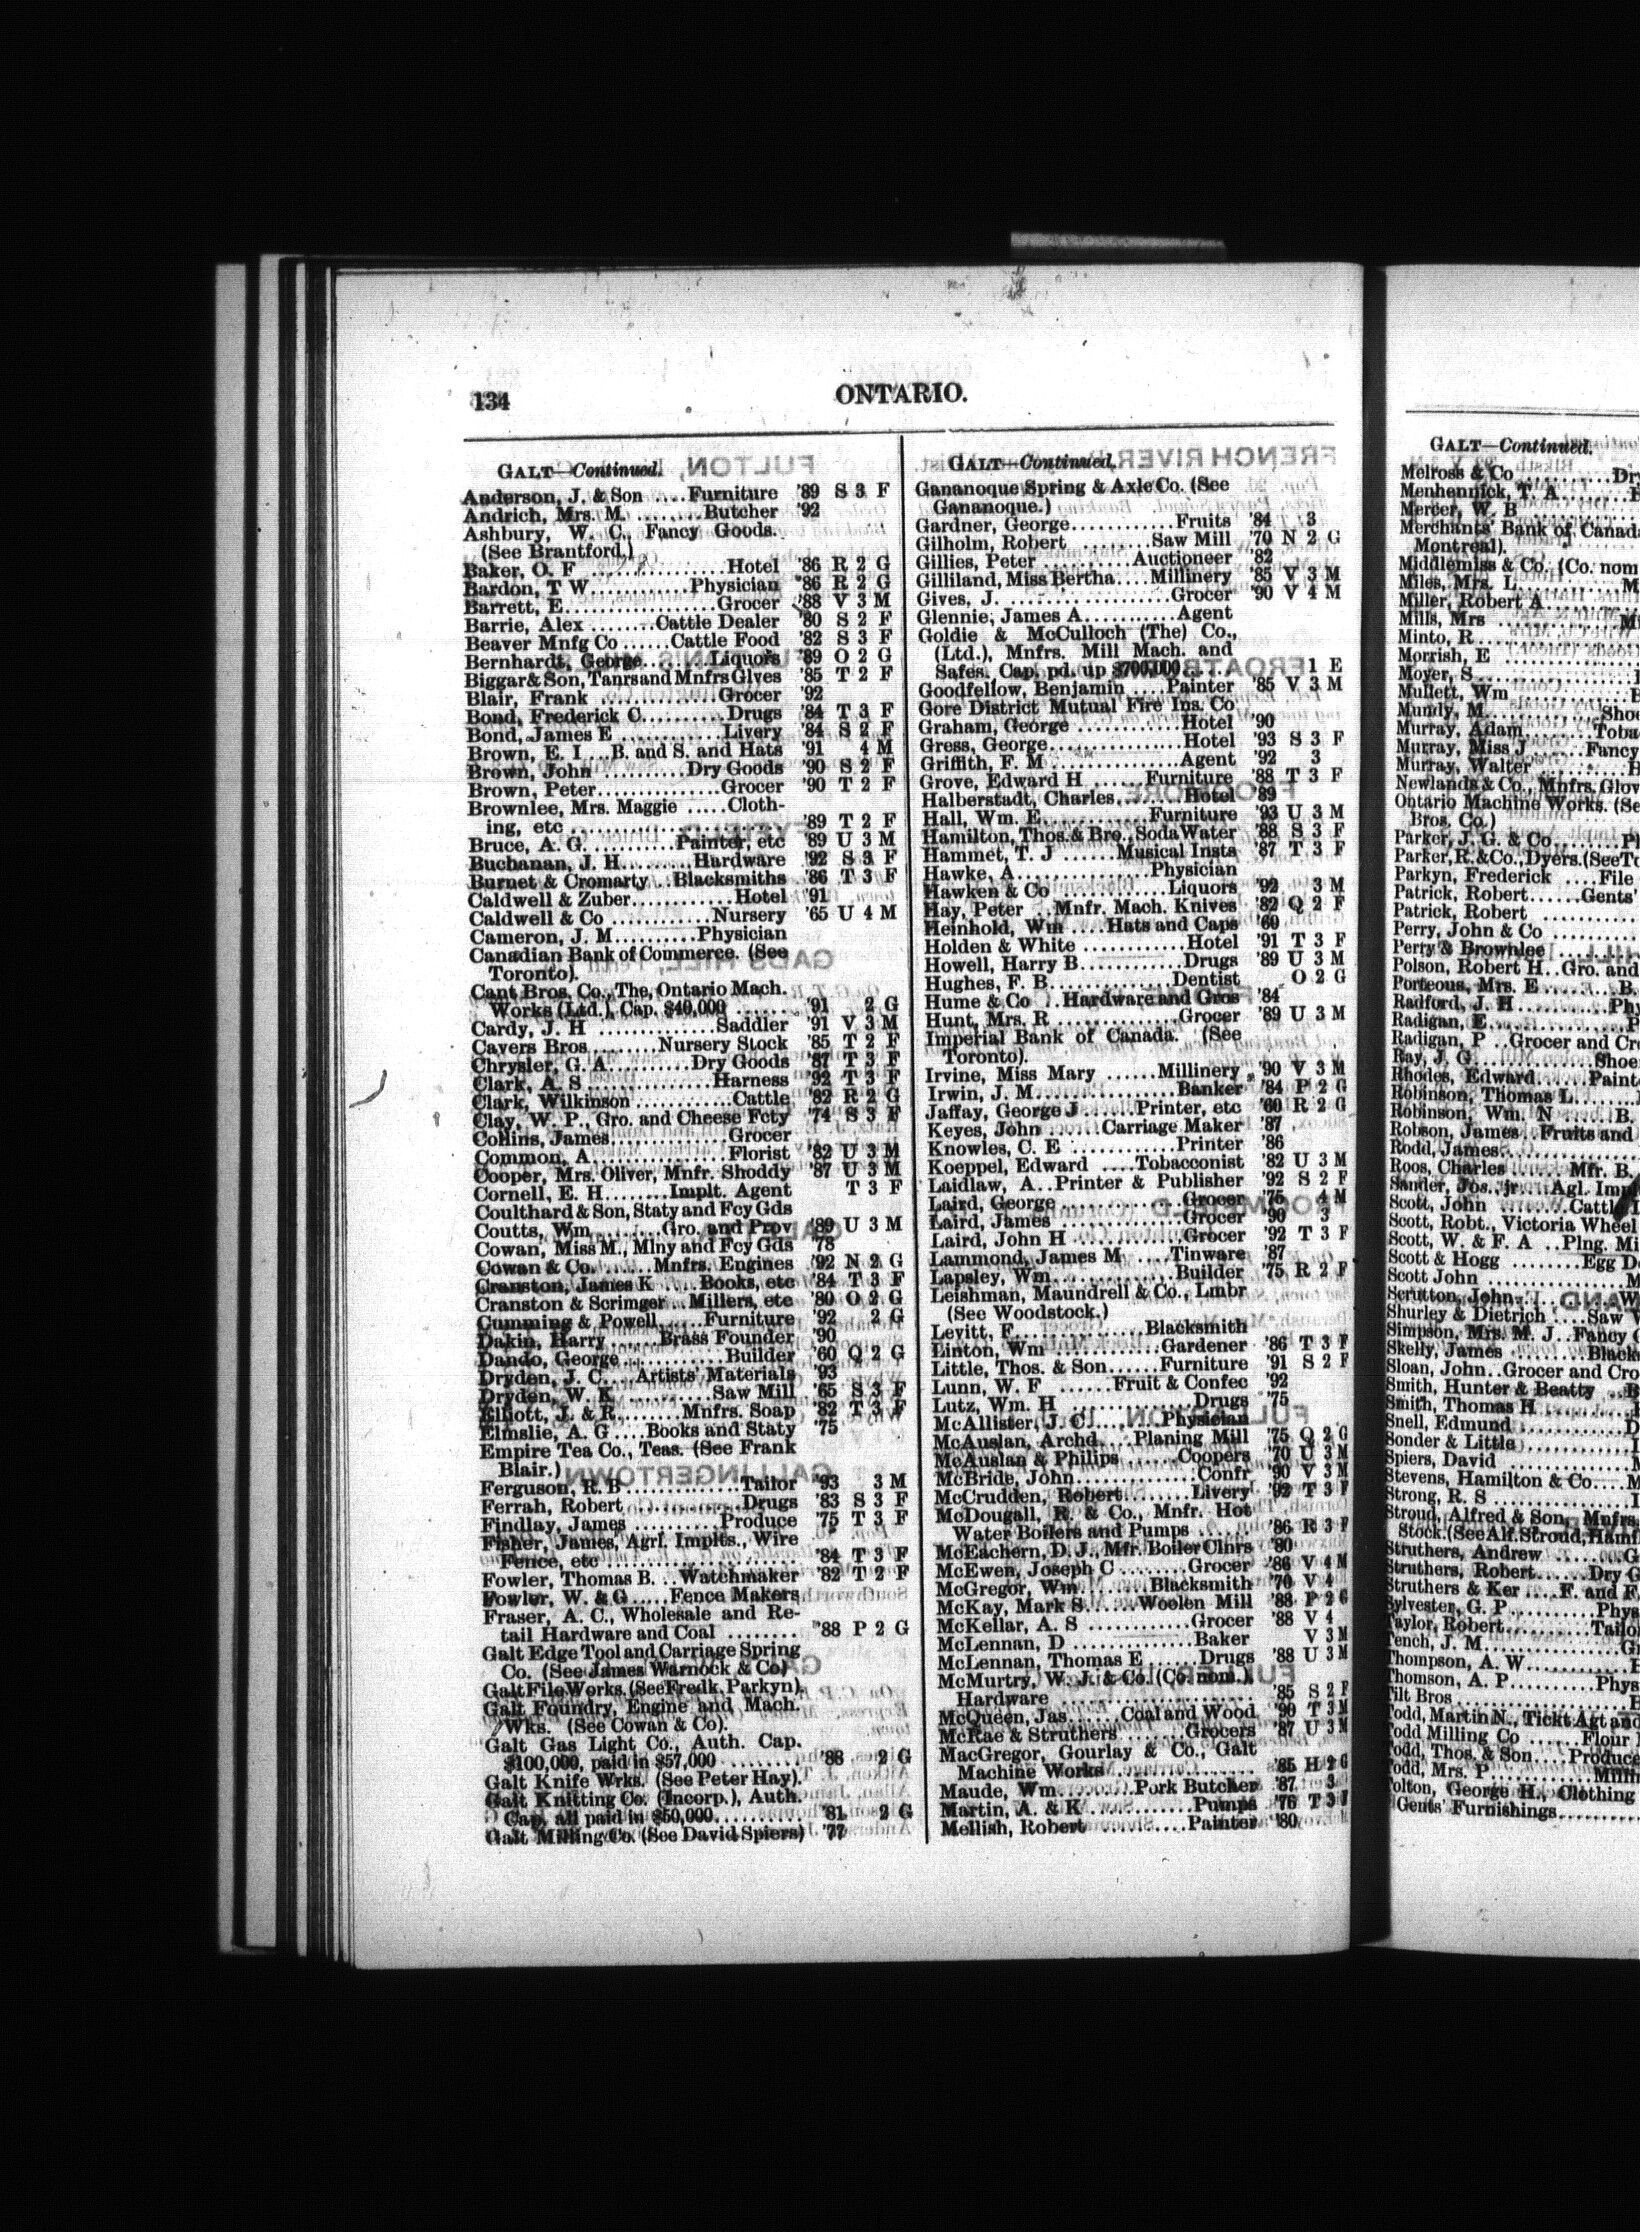 134
ONTARIO.
GALT—Continued.
Anderson, J. & Son ....Furniture '89 S 3 F
Andrich, Mrs. M. ........Butcher '92
Ashbury, W. C., Fancy Goods.
(See Brantford.)
Baker, O. F ................Hotel '86 R 2 G
Bardon, T W............Physician '86 R 2 G
Barrett, E..................Grocer '88 V 3 M
Barrie, Alex ........Cattle Dealer '80 S 2 F
Beaver Mnfg Co ......Cattle Food '82 S 3 F
Bernhardt, George........Liquors '89 O 2 G
Biggar & Son, Tanrs and Mnfrs Glves '85 T 2 F
Blair, Frank ..............Grocer '92
Bond, Frederick C..........Drugs '84 T 3 F
Bond, James E ............Livery '84 S 2 F
Brown, E. I ...B. and S. and Hats '91 4 M
Brown, John ..........Dry Goods '90 S 2 F
Brown, Peter..............Grocer '90 T 2 F
Brownlee, Mrs. Maggie .....Cloth-
ing, etc .................... '89 T 2 F
Bruce, A. G..........Painter, etc '89 U 3 M
Buchanan, J. H.........Hardware '92 S 3 F
Burnet & Cromarty ..Blacksmiths '86 T 3 F
Caldwell & Zuber............Hotel '91
Caldwell & Co ............Nursery '65 U 4 M
Cameron, J. M..........Physician
Canadian Bank of Commerce. (See
Toronto).
Cant Bros. Co., The, Ontario Mach.
Works (Ltd.), Cap. $40,000 ....... '91 2 G
Cardy, J. H ..............Saddler '91 V 3 M
Cavers Bros........Nursery Stock '85 T 2 F
Chrysler, G. A.........Dry Goods '87 T 3 F
Clark, A. S ...............Harness '92 T 3 F
Clark, Wilkinson ............Cattle '82 R 2 G
Clay, W. P., Gro. and Cheese Fcty '74 S 3 F
Collins, James..............Grocer
Common, A................Florist '82 U 3 M
Cooper, Mrs. Oliver, Mnfr. Shoddy '87 U 3 M
Cornell, E. H........Implt. Agent T 3 F
Coulthard & Son, Staty and Fcy Gds
Coutts, Wm ........Gro. and Prov '89 U 3 M
Cowan, Miss M., Mlny and Fcy Gds '78
Cowan & Co. ......Mnfrs. Engines '92 N 2 G
Cranston, James K .....Books, etc '84 T 3 F
Cranston & Scrimger...Millers, etc '80 O 2 G
Cumming & Powell......Furniture '92 2 G
Dakin, Harry .....Brass Founder '90
Dando, George ............Builder '60 Q 2 G
Dryden, J. C....Artists' Materials '93
Dryden, W. K............Saw Mill '65 S 3 F
Elliott, J. & R........Mnfrs. Soap '82 T 3 F
Elmslie, A. G ....Books and Staty '75
Empire Tea Co., Teas. (See Frank
Blair.)
Ferguson, R. B..............Tailor '93 3 M
Ferrah, Robert..............Drugs '83 S 3 F
Findlay, James ..........Produce '75 T 3 F
Fisher, James, Agrl. Implts., Wire
Fence, etc ...................... '84 T 3 F
Fowler, Thomas B. ..Watchmaker '82 T 2 F
Fowler, W. & G .....Fence Makers
Fraser, A. C., Wholesale and Re-
tail Hardware and Coal ........ '88 P 2 G
Galt Edge Tool and Carriage Spring
Co. (See James Warnock & Co)
Galt File Works. (See Fredk. Parkyn).
Galt Foundry, Engine and Mach.
Wks. (See Cowan & Co).
Galt Gas Light Co., Auth. Cap.
$100,000, paid in $57,000 ......... '88 2 G
Galt Knife Wrks. (See Peter Hay).
Galt Knitting Co. (Incorp.), Auth.
Cap. all paid in $50,000.......... '81 2 G
Galt Milling Co. (See David Spiers) '77
GALT—Continued.
Gananoque Spring & Axle Co. (See
Gananoque.)
Gardner, George............Fruits '84 3
Gilholm, Robert ........Saw Mill '70 N 2 G
Gillies, Peter ..........Auctioneer '82
Gilliland, Miss Bertha....Millinery '85 V 3 M
Gives, J. ...................Grocer '90 V 4 M
Glennie, James A...........Agent
Goldie & McCulloch (The) Co.,
(Ltd.), Mnfrs. Mill Mach. and
Safes. Cap. pd. up $700,000...... 1 E
Goodfellow, Benjamin ....Painter '85 V 3 M
Gore District Mutual Fire Ins. Co
Graham, George ............Hotel '90
Gress, George................Hotel '93 S 3 F
Griffith, F. M ...............Agent '92 3
Grove, Edward H ......Furniture '88 T 3 F
Halberstadt, Charles........Hotel '89
Hall, Wm. E.............Furniture '93 U 3 M
Hamilton, Thos. & Bro., Soda Water '88 S 3 F
Hammet, T. J ......Musical Insts '87 T 3 F
Hawke, A................Physician
Hawken & Co .............Liquors '92 3 M
Hay, Peter ..Mnfr. Mach. Knives '82 Q 2 F
Heinhold, Wm ....Hats and Caps '60
Holden & White ............Hotel '91 T 3 F
Howell, Harry B............Drugs '89 U 3 M
Hughes, F. B..............Dentist O 2 G
Hume & Co ..Hardware and Gros '84
Hunt, Mrs. R ..............Grocer '89 U 3 M
Imperial Bank of Canada. (See
Toronto).
Irvine, Miss Mary ......Millinery '90 V 3 M
Irwin, J. M................Banker '84 P 2 G
Jaffay, George J ......Printer, etc '60 R 2 G
Keyes, John ......Carriage Maker '87
Knowles, C. E ............Printer '86
Koeppel, Edward ....Tobacconist '82 U 3 M
Laidlaw, A...Printer & Publisher '92 S 2 F
Laird, George ..............Grocer '75 4 M
Laird, James ..............Grocer '90 3
Laird, John H ..............Grocer '92 T 3 F
Lammond, James M .....Tinware '87
Lapsley, Wm..............Builder '75 R 2 F
Leishman, Maundrell & Co., Lmbr
(See Woodstock.)
Levitt, F...............Blacksmith
Linton, Wm ............Gardener '86 T 3 F
Little, Thos. & Son......Furniture '91 S 2 F
Lunn, W. F ......Fruit & Confec '92
Lutz, Wm. H ..............Drugs '75
McAllister, J. C.........Physician
McAuslan, Archd....Planing Mill '75 Q 2 G
McAuslan & Philips ......Coopers '70 U 3 M
McBride, John..............Confr '90 V 3 M
McCrudden, Robert........Livery '92 T 3 F
McDougall, R. & Co., Mnfr. Hot
Water Boilers and Pumps ...... '86 R 3 F
McEachern, D. J., Mfr. Boiler Clnrs '80
McEwen, Joseph C ........Grocer '86 V 4 M
McGregor, Wm........Blacksmith '70 V 4
McKay, Mark S......Woolen Mill '88 P 2 G
McKellar, A. S ............Grocer '88 V 4
McLennan, D ..............Baker V 3 M
McLennan, Thomas E ......Drugs '88 U 3 M
McMurtry, W. J. & Co. (Co. nom.),
Hardware .................... '85 S 2 F
McQueen, Jas......Coal and Wood '90 T 3 M
McRae & Struthers ........Grocers '87 U 3 M
MacGregor, Gourlay & Co., Galt
Machine Works ................ '85 H 2 G
Maude, Wm........Pork Butcher '87 3
Martin, A. & K ............Pumps '76 T 3 F
Mellish, Robert ..........Painter '80
GALT—Continued.
Melross & Co ..........Dry
Menhennick, T. A
Mercer, W. B
Merchants' Bank of Canada
Montreal).
Middlemiss & Co. (Co. nom
Miles, Mrs. L.
Miller, Robert A
Mills, Mrs
Minto, R
Morrish, E
Moyer, S
Mullett, Wm
Mundy, M............Shoe
Murray, Adam........Toba
Murray, Miss J ......Fancy
Murray, Walter
Newlands & Co., Mnfrs. Glov
Ontario Machine Works. (Se
Bros. Co.)
Parker, J. G. & Co
Parker, R. & Co., Dyers. (See To
Parkyn, Frederick ....File
Patrick, Robert......Gents'
Patrick, Robert
Perry, John & Co
Perry & Brownlee
Polson, Robert H..Gro. and
Porteous, Mrs. E ........B.
Radford, J. H ..........Phy
Radigan, E
Radigan, P ..Grocer and Cr
Ray, J. G............Shoe
Rhodes, Edward......Painte
Robinson, Thomas L
Robinson, Wm. N ........B.
Robson, James..Fruits and
Rodd, James
Roos, Charles ......Mfr. B.
Sander, Jos., jr....Agl. Imp
Scott, John ..........Cattle
Scott, Robt., Victoria Wheel
Scott, W. & F. A ..Plng. Mi
Scott & Hogg ........Egg D
Scott John
Scrutton, John
Shurley & Dietrich ....Saw
Simpson, Mrs. M. J..Fancy
Skelly, James ........Black
Sloan, John..Grocer and Cro
Smith, Hunter & Beatty
Smith, Thomas H
Snell, Edmund
Sonder & Little
Spiers, David
Stevens, Hamilton & Co
Strong, R. S
Stroud, Alfred & Son, Mnfrs.
Stock. (See Alf. Stroud, Ham
Struthers, Andrew
Struthers, Robert......Dry G
Struthers & Ker ....F. and F
Sylvester, G. P..........Phys
Taylor, Robert..........Tailo
Tench, J. M
Thompson, A. W
Thomson, A. P..........Phys
Tilt Bros
Todd, Martin N., Tickt Agt and
Todd Milling Co ......Flour
Todd, Thos. & Son....Produce
Todd, Mrs. P..........Millin
Tolton, George H., Clothing
Gents' Furnishings